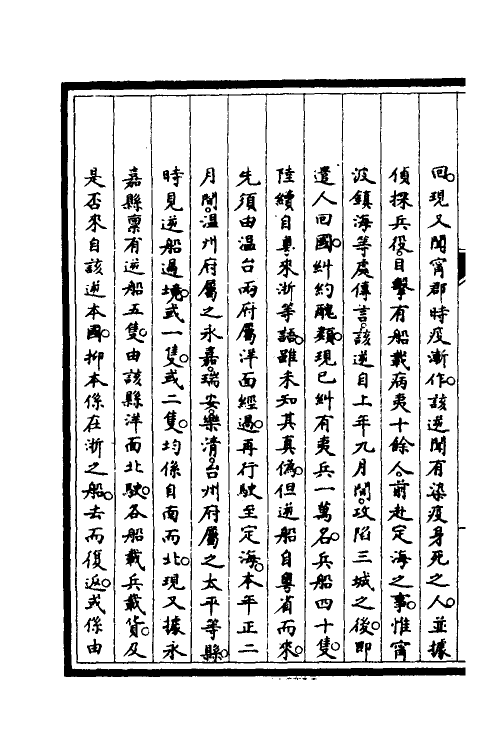 回。現又聞甯郡時疫漸作。該逆聞有染疫身死之人。並據
偵探兵役。目擊有船載病夷十餘人。前赴定海之事。惟甯
波鎮海等處傳言。該逆自上年九月間。攻陷三城之後。即
遣人回國。糾約醜類。現已糾有夷兵一萬名。兵船四十隻。
陸續自粵來浙等語。雖未知其真偽。但逆船自粵省而來。
先須由温台兩府屬洋面經過。再行駛至定海。本年正二
月間。温州府屬之永嘉。瑞安。樂清。台州府屬之太平等縣。
時見逆船過境。或一隻。或二隻。均係自南而北。現又據永
嘉縣稟有逆船五隻。由該縣洋面北駛。各船載兵載貨。及
是否來自該逆本國。抑本係在浙之船。去而復返。或係由